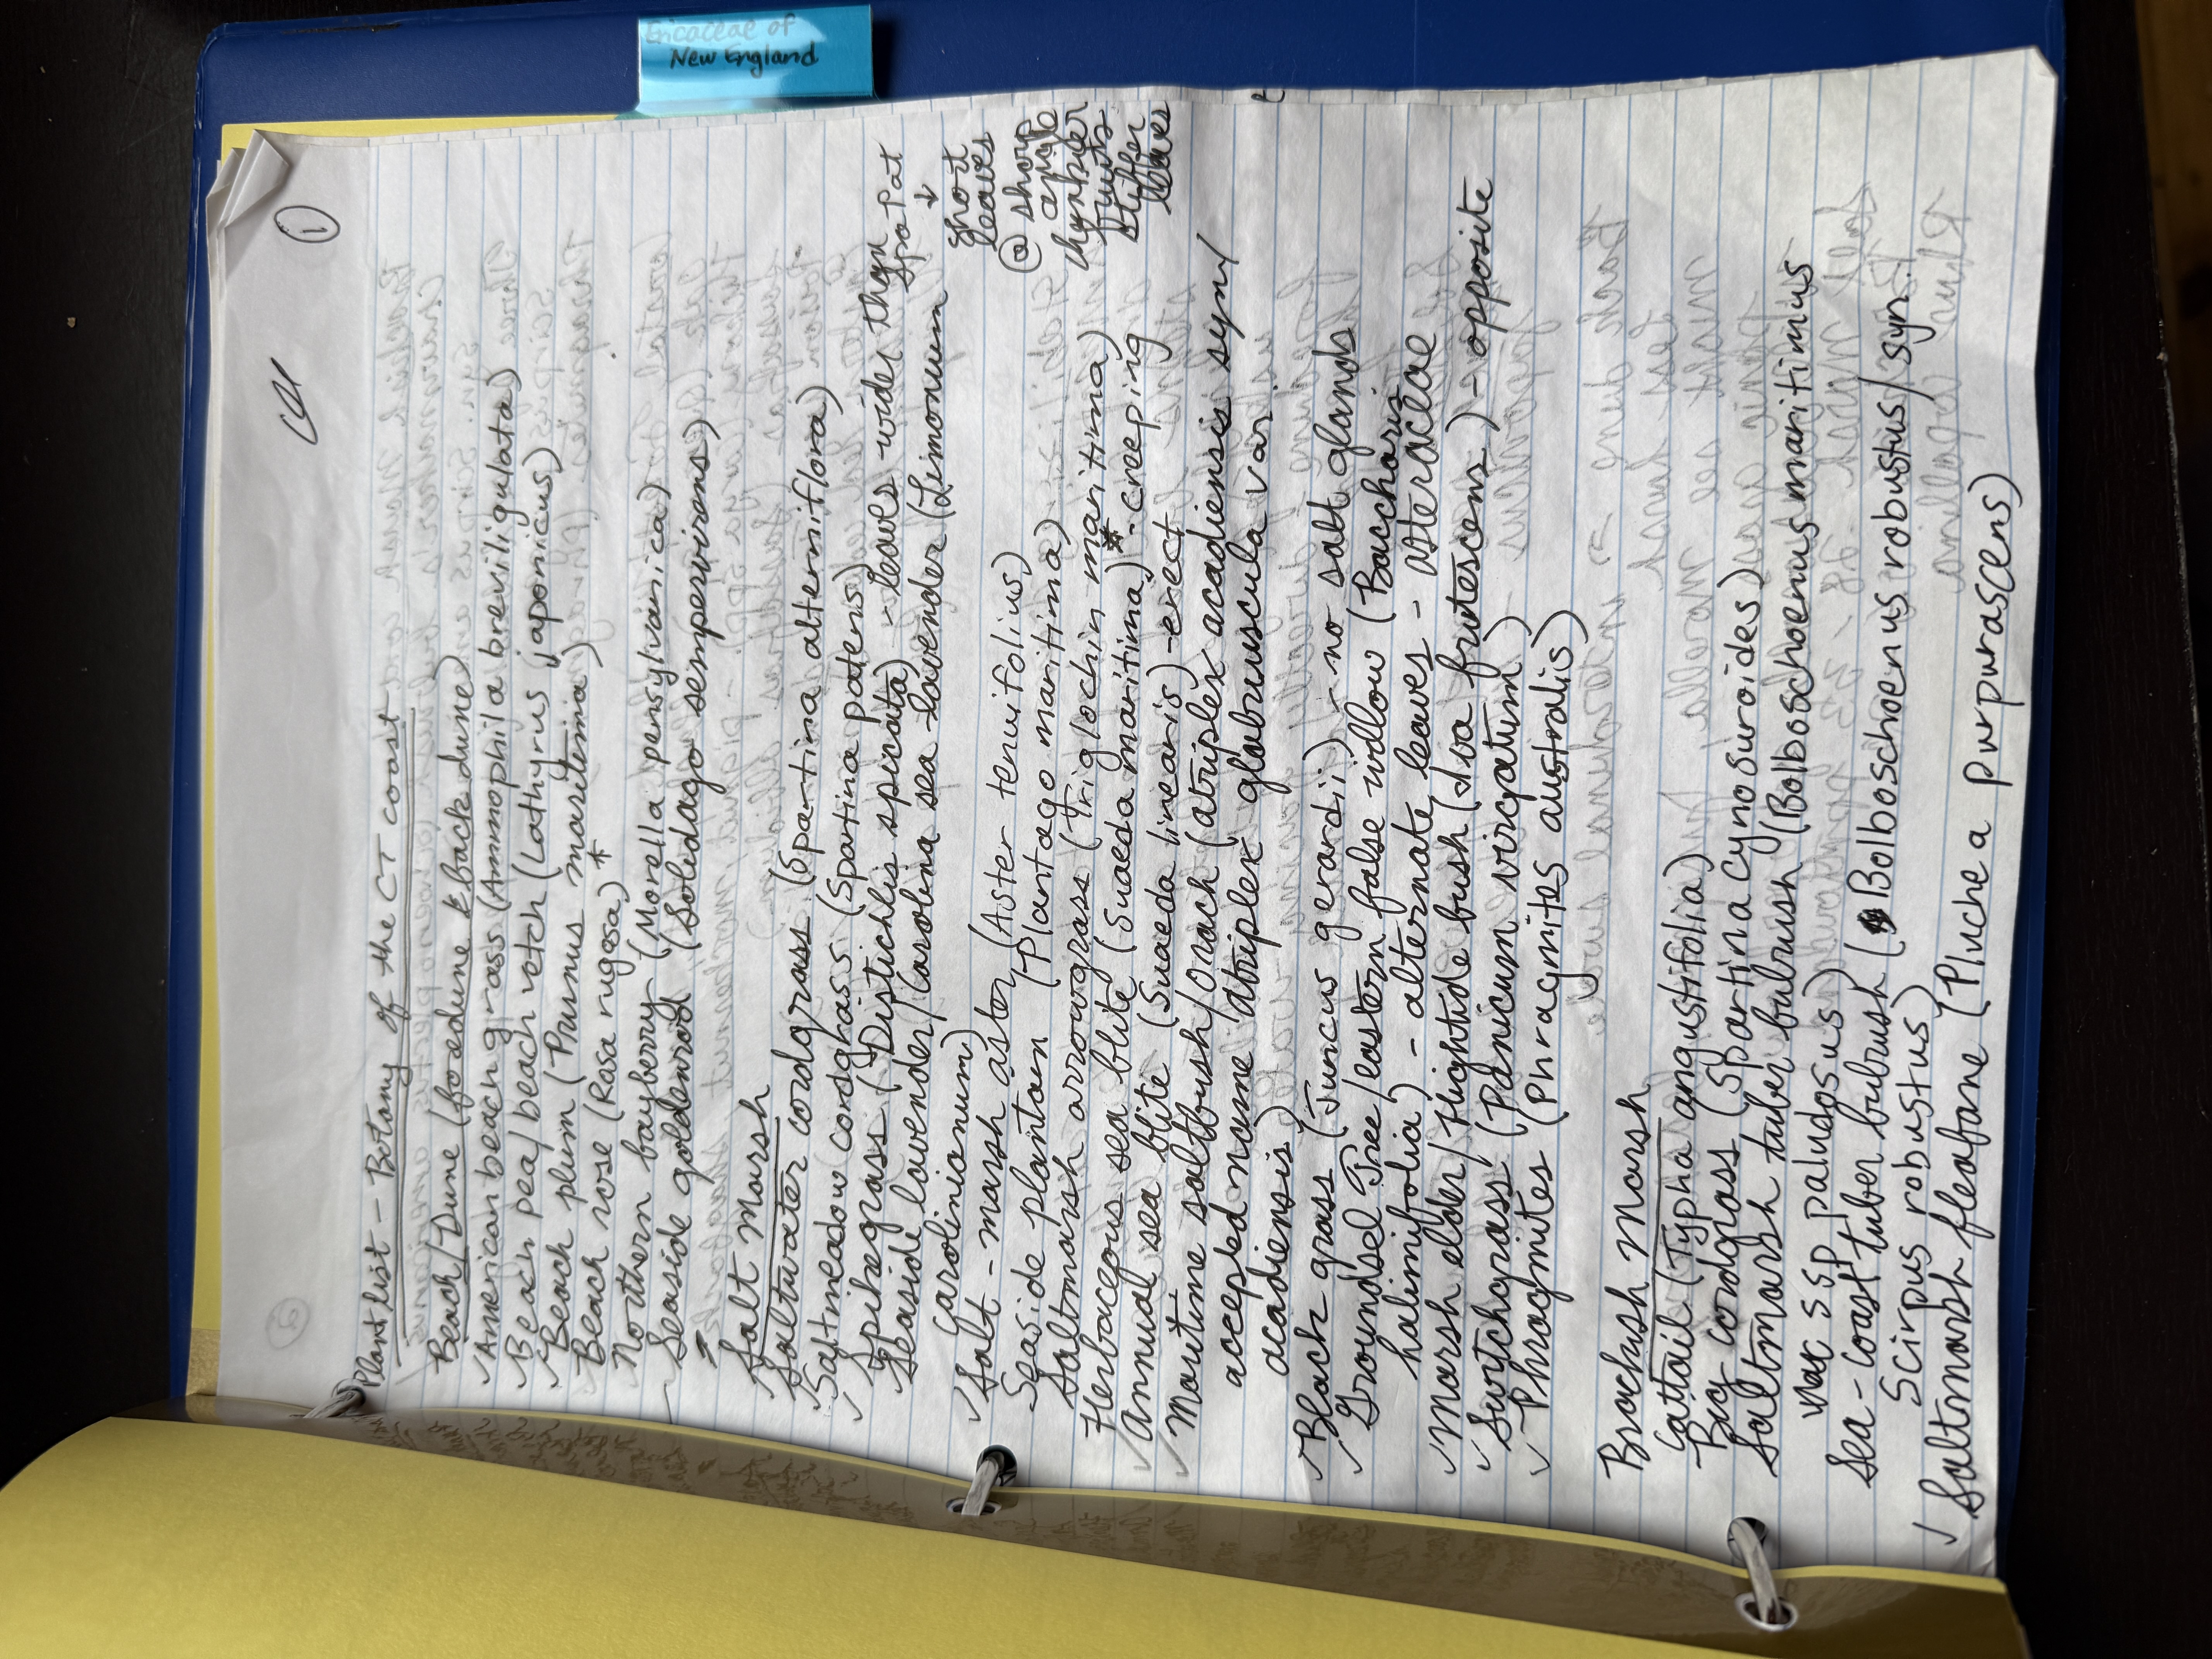 Ericaceae of
New England
①
Plant list - Botany of the CT coast
Beach/Dune (foredune & backdune)
✓American beachgrass (Ammophila breviligulata)
✓Beach pea/beach vetch (Lathyrus japonicus)
✓Beach plum (Prunus maritima)
✓Beach rose (Rosa rugosa) *
Northern bayberry (Morella pensylvanica)
- Seaside goldenrod (Solidago sempervirens)
Salt Marsh
✓Saltwater cordgrass (Spartina alterniflora)
✓Saltmeadow cordgrass (Spartina patens)
✓Spikegrass (Distichlis spicata) - leaves wider than SpaPat
↓
short
leaves
@ sharp
angle
chunkier
fruits
stiffer
leaves
Seaside lavender/Carolina sea lavender (Limonium
carolinianum)
✓Salt-marsh aster (Aster tenuifolius)
Seaside plantain (Plantago maritima)
Saltmarsh arrowgrass (Triglochin maritima)
Herbaceous sea blite (Suaeda maritima) * - creeping
✓Annual sea blite (Suaeda linearis) - erect
✓Maritime saltbush/Orach (atriplex acadiensis syn/
accepted name atriplex glabruscula var.
acadiensis)
✓Black grass (Juncus gerardii) - no salt glands
✓Groundsel Tree/eastern false willow (Baccharis
halimifolia) - alternate leaves - asteraceae
✓Marsh elder/Hightide bush (Iva frutescens) - opposite
✓Switchgrass (Panicum virgatum)
✓Phragmites (Phragmites australis)
Brackish Marsh
Cattail (Typha angustifolia)
Big cordgrass (Spartina cynosuroides)
Saltmarsh tuber bulrush (Bolboschoenus maritimus
ssp paludosus)
Sea-coast tuber bulrush (Bolboschoenus robustus/syn.
Scirpus robustus)
✓Saltmarsh fleabane (Pluchea purpurascens)